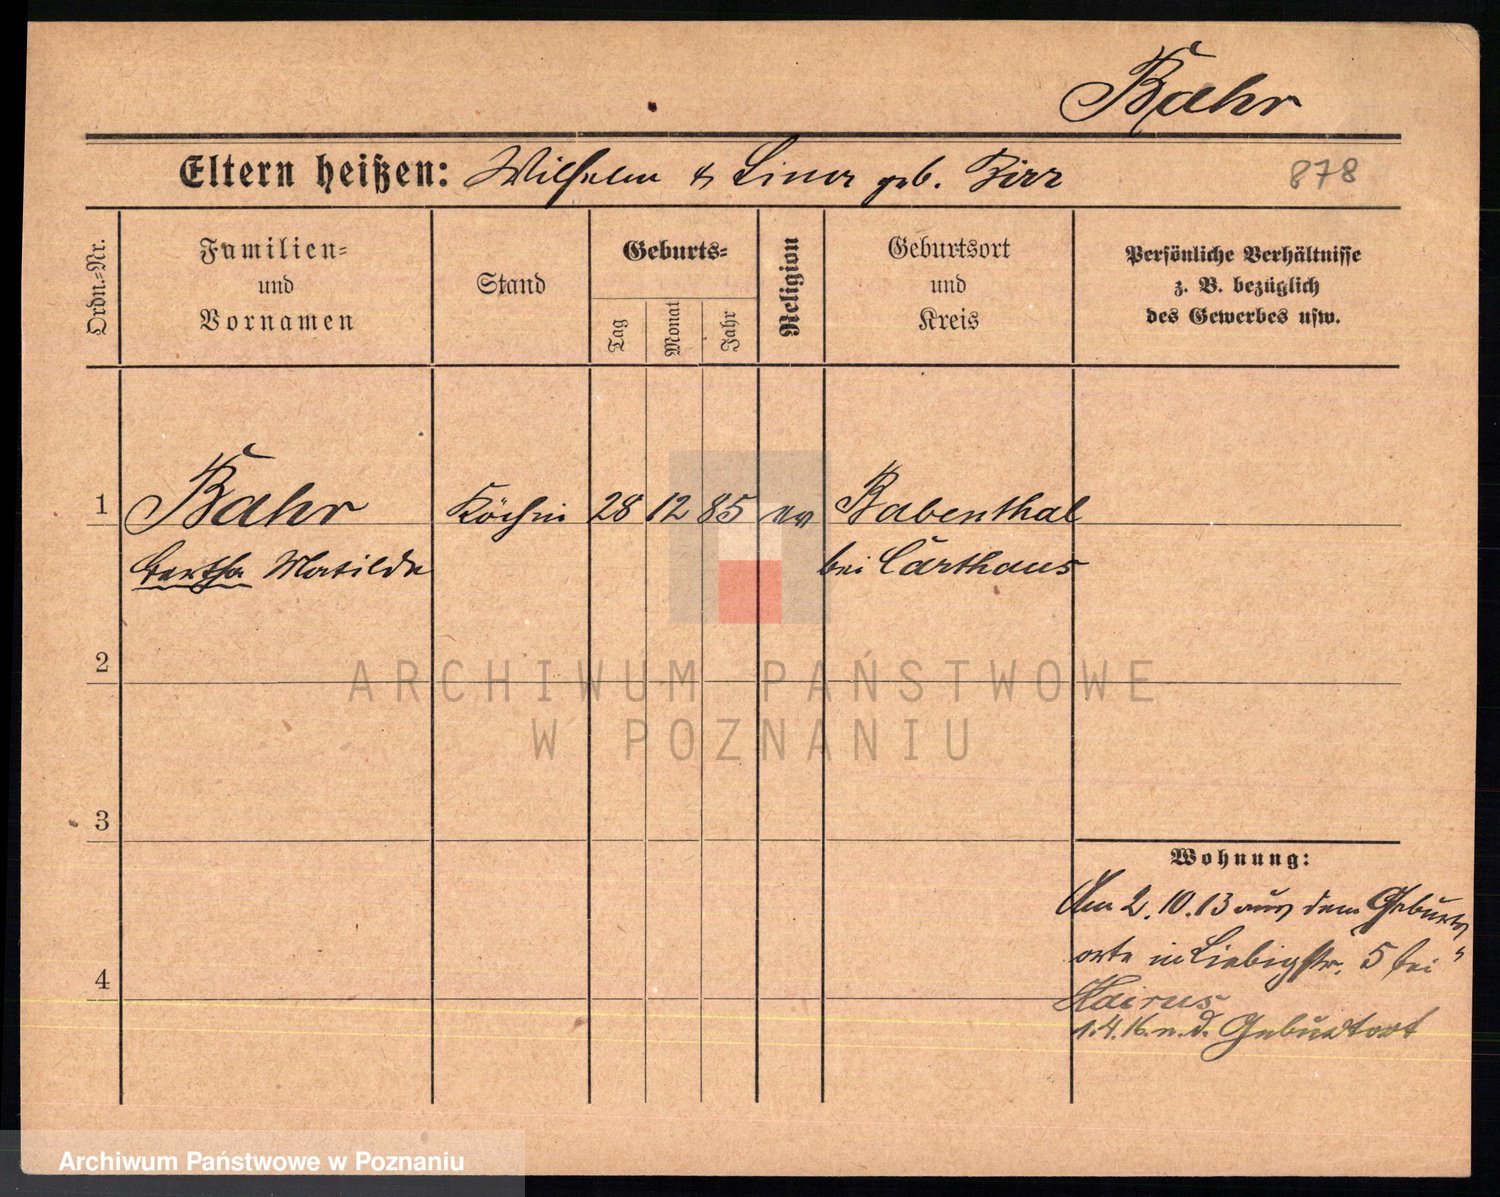 Bahr
Eltern heißen: Wilhelm & Lina geb. Birr 878
Ordn.-Nr.
Familien-
und
Vornamen
Stand
Geburts-
Tag
Monat
Jahr
Religion
Geburtsort
und
Kreis
Persönliche Verhältnisse
z. B. bezüglich
des Gewerbes usw.
1 Bahr Köchin 28 12 85 ev Babenthal
Bertha Matilde bei Carthaus
2
3
4
Wohnung:
Am 2.10.13 aus dem Geburts
orte in Liebigstr. 5 bei
1.4.16. n. d. Geburtort
ARCHIWUM PAŃSTWOWE
W POZNANIU
Archiwum Państwowe w Poznaniu